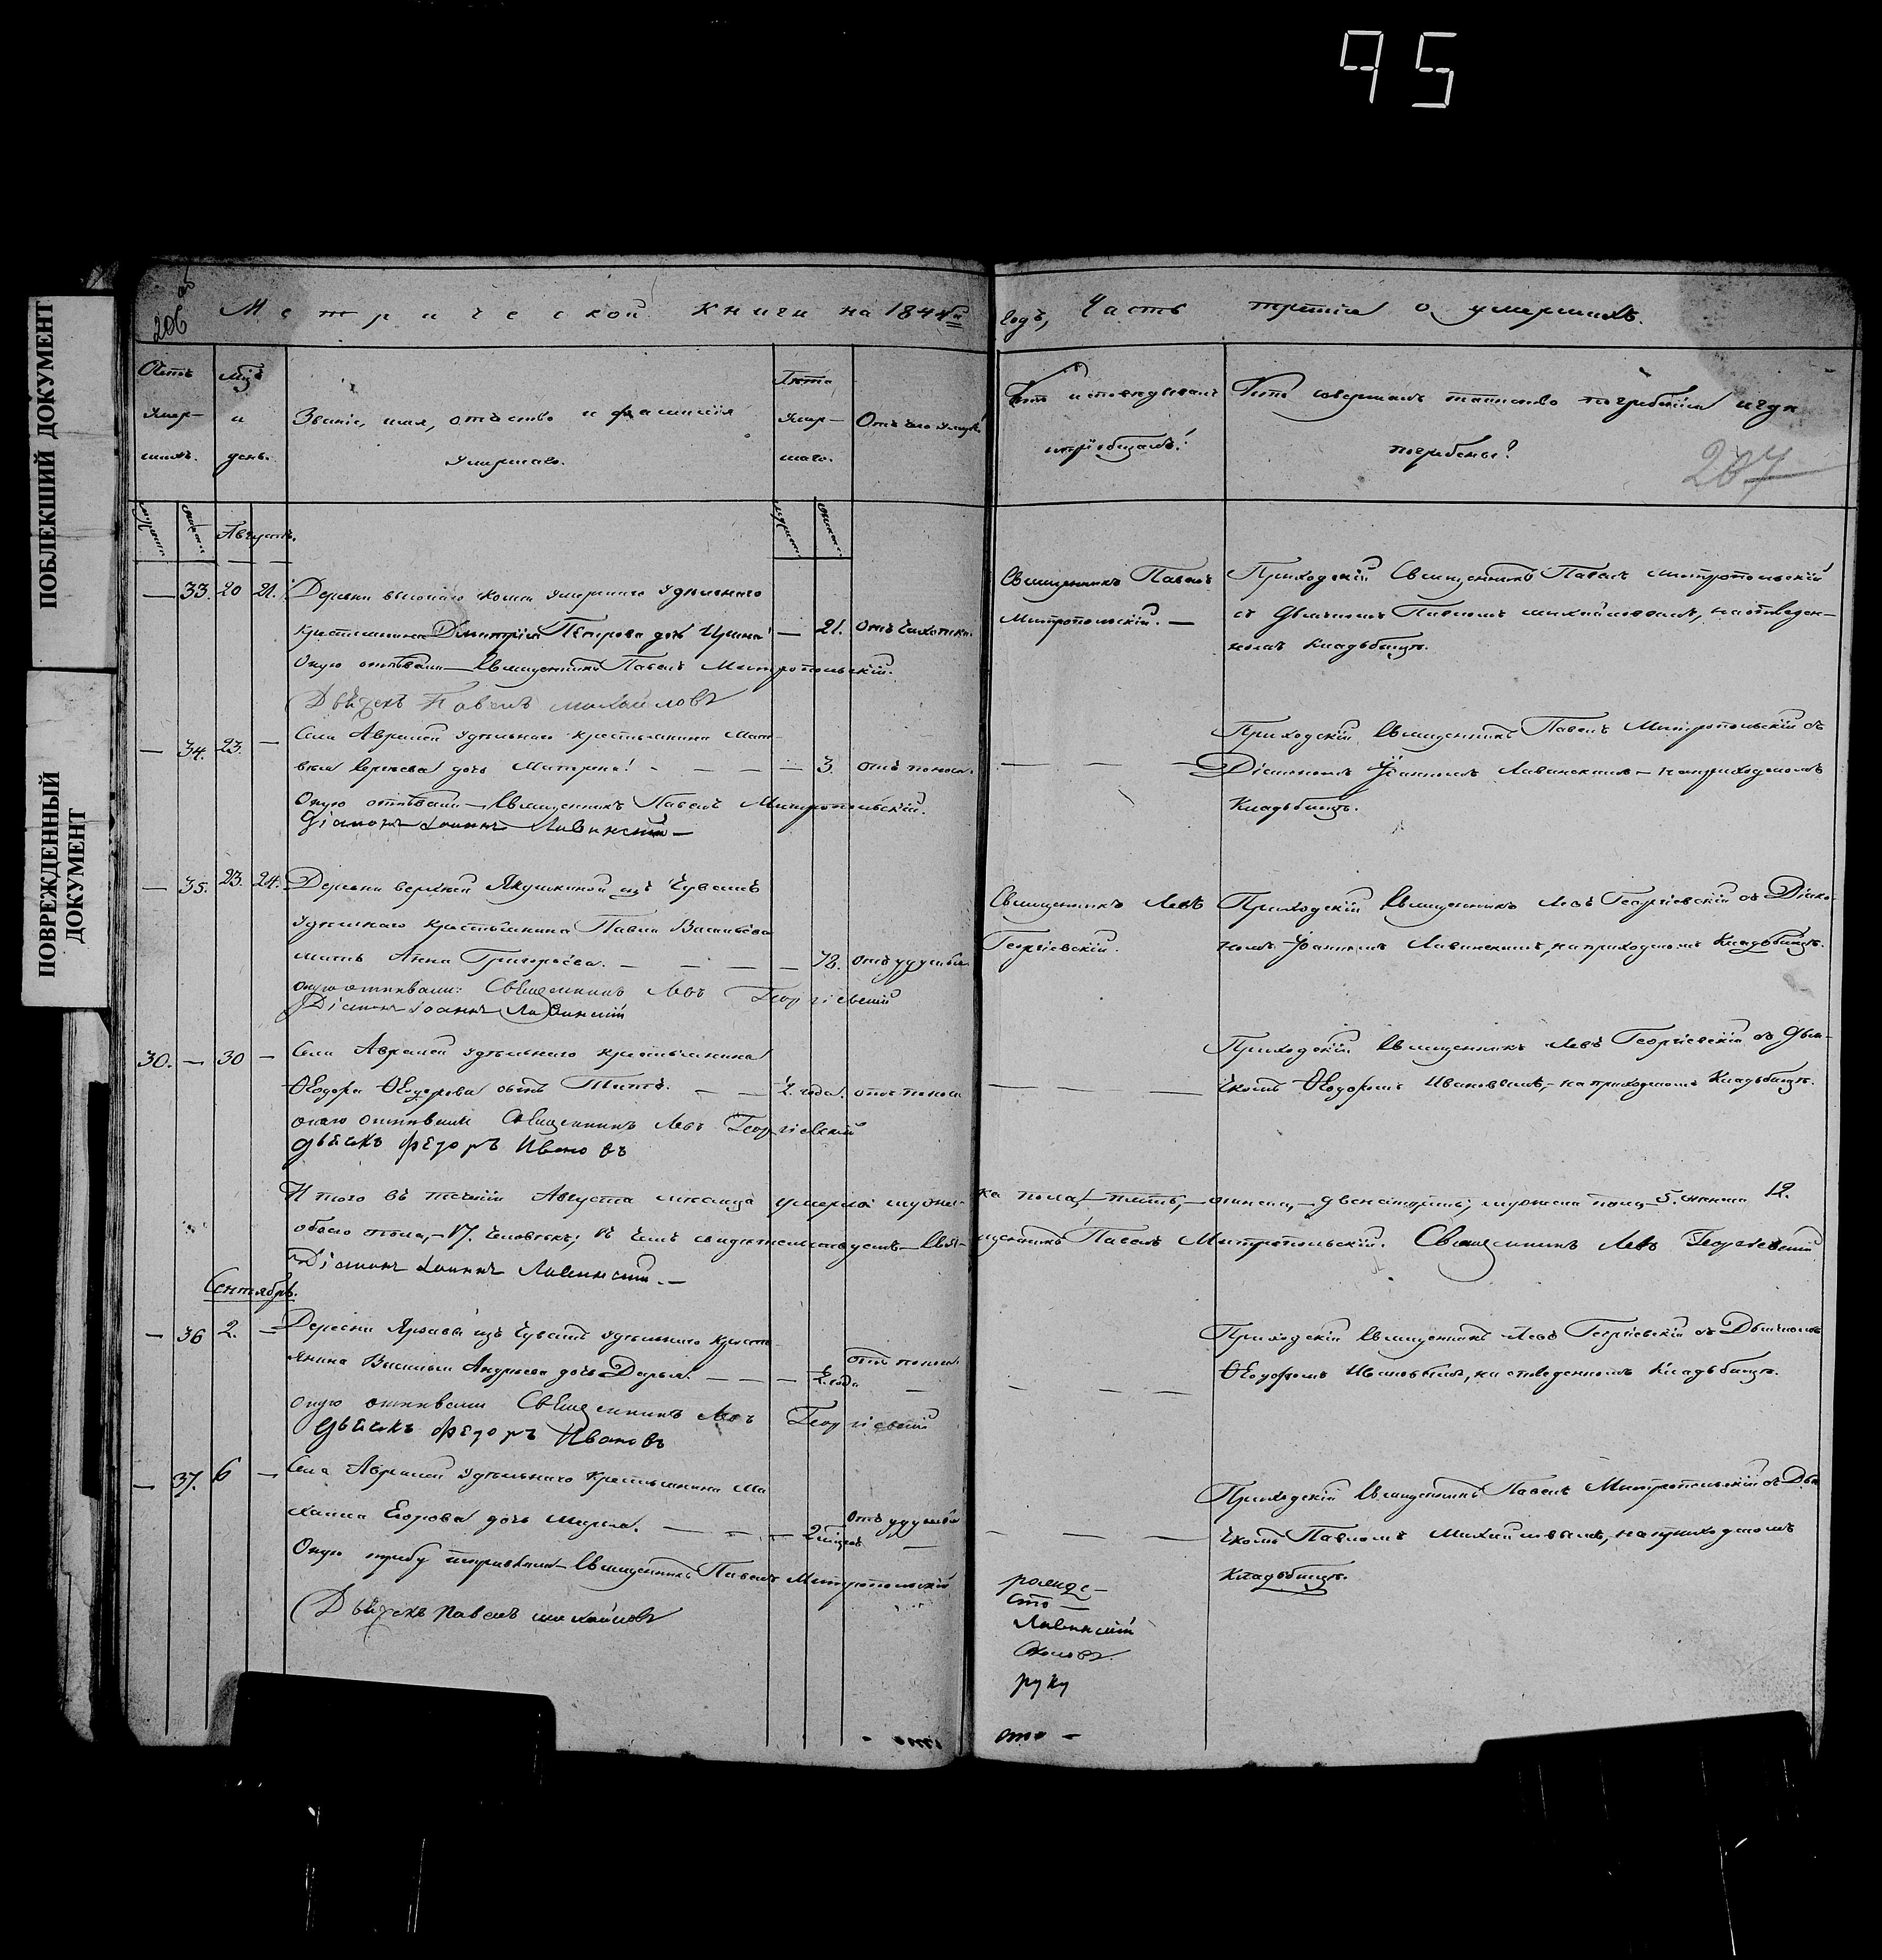 95
ПОБЛЕКШИЙ ДОКУМЕНТ
ПОВРЕЖДЕННЫЙ ДОКУМЕНТ
206 об
Метрической книги на 1844й годъ, Часть третія о умершихъ.
207
Счетъ умер-шихъ.
Мѣц. и день.
Званіе, имя, отчество и фамилія умершаго.
Лѣта умер-шаго.
Отъ чего умеръ
Кто исповѣдывалъ и пріобщалъ?
Кто совершалъ таинство погребенія и гдѣ погребены?
Августъ.
— 33. 20 21. Деревни высокаго колка умершаго удѣльнаго
крестьянина Димитрія Петрова дочь Ирина — 21. отъ чахотки.
Оную отпѣвали — Священникъ Павелъ Митропольскій.
Дьячекъ Павелъ михайловъ
Священникъ Павелъ
Митропольскій. —
Приходскій Священникъ Павелъ митропольскій
съ Дьячкомъ Павломъ михайловымъ, на отведен-
номъ кладбищѣ.
— 34. 23. — Села Авралей удѣльнаго крестьянина Мат-
вѣя Сергѣева дочь Матрена — 3. отъ поноса.
Оную отпѣвали — Священникъ Павелъ Митропольскій.
Діаконъ Іоаннъ Лавинскій —
Приходскій Священникъ Павелъ Митропольскій съ
Діакономъ Іоанномъ Лавинскимъ — на приходскомъ
Кладбищѣ.
— 35. 23. 24. Деревни верхней Якушкиной изъ Чувашъ
удѣльнаго крестьянина Павла Васильева
мать Анна Григорьева. — 78. отъ удушья
оную отпѣвали: Священникъ Левъ Георгіевскій
Діаконъ Іоаннъ Лавинскій
Священникъ Левъ
Георгіевскій.
Приходскій Священникъ Левъ Георгіевскій съ Діако-
номъ Іоанномъ Лавинскимъ, на приходскомъ Кладбищѣ.
30. — 30 — Села Авралей удѣльнаго крестьянина
Ѳеодора Ѳеодорова сынъ Титъ. — 2. года. отъ поноса
онаго отпѣвали Священникъ Левъ Георгіевскій
дьячекъ Федоръ Ивановъ
Приходскій Священникъ Левъ Георгіевскій съ Дья-
чкомъ Ѳеодоромъ Ивановымъ, — на приходскомъ Кладбищѣ.
Итого въ теченіи Августа мѣсяца умерло мужес-ка пола, — пять, — женска, — двенатцать; мужеска пола — 5. женска 12.
обоего пола, — 17. человѣкъ; въ чемъ свидетельствуемъ — Свя-щенникъ Павелъ Митропольскій. Священникъ Левъ Георгіевскій
Діаконъ Іоаннъ Лавинскій. —
Сентябрь.
— 36 2. — Деревни изъ Чувашъ удѣльнаго крест-
янина Василья Андреева дочь Дарья. — 2. года отъ поноса.
оную отпѣвали Священникъ Левъ Георгіевскій
Дьячекъ Федоръ Ивановъ
Приходскій Священникъ Левъ Георгіевскій съ Дьячкомъ
Ѳеодоромъ Ивановымъ, на отведенномъ кладбищѣ.
— 37. 6 — Села Авралей удѣльнаго крестьянина Ми
хаила Егорова дочь Марья. — 2 отъ удушья
Оную требу исправляли — Священникъ Павелъ Митропольскій
Дьячекъ Павелъ михайловъ
Приходскій Священникъ Павелъ Митропольскій съ Дья
чкомъ Павломъ Михайловымъ, на приходскомъ
Кладбищѣ.
Лавинскій
руку